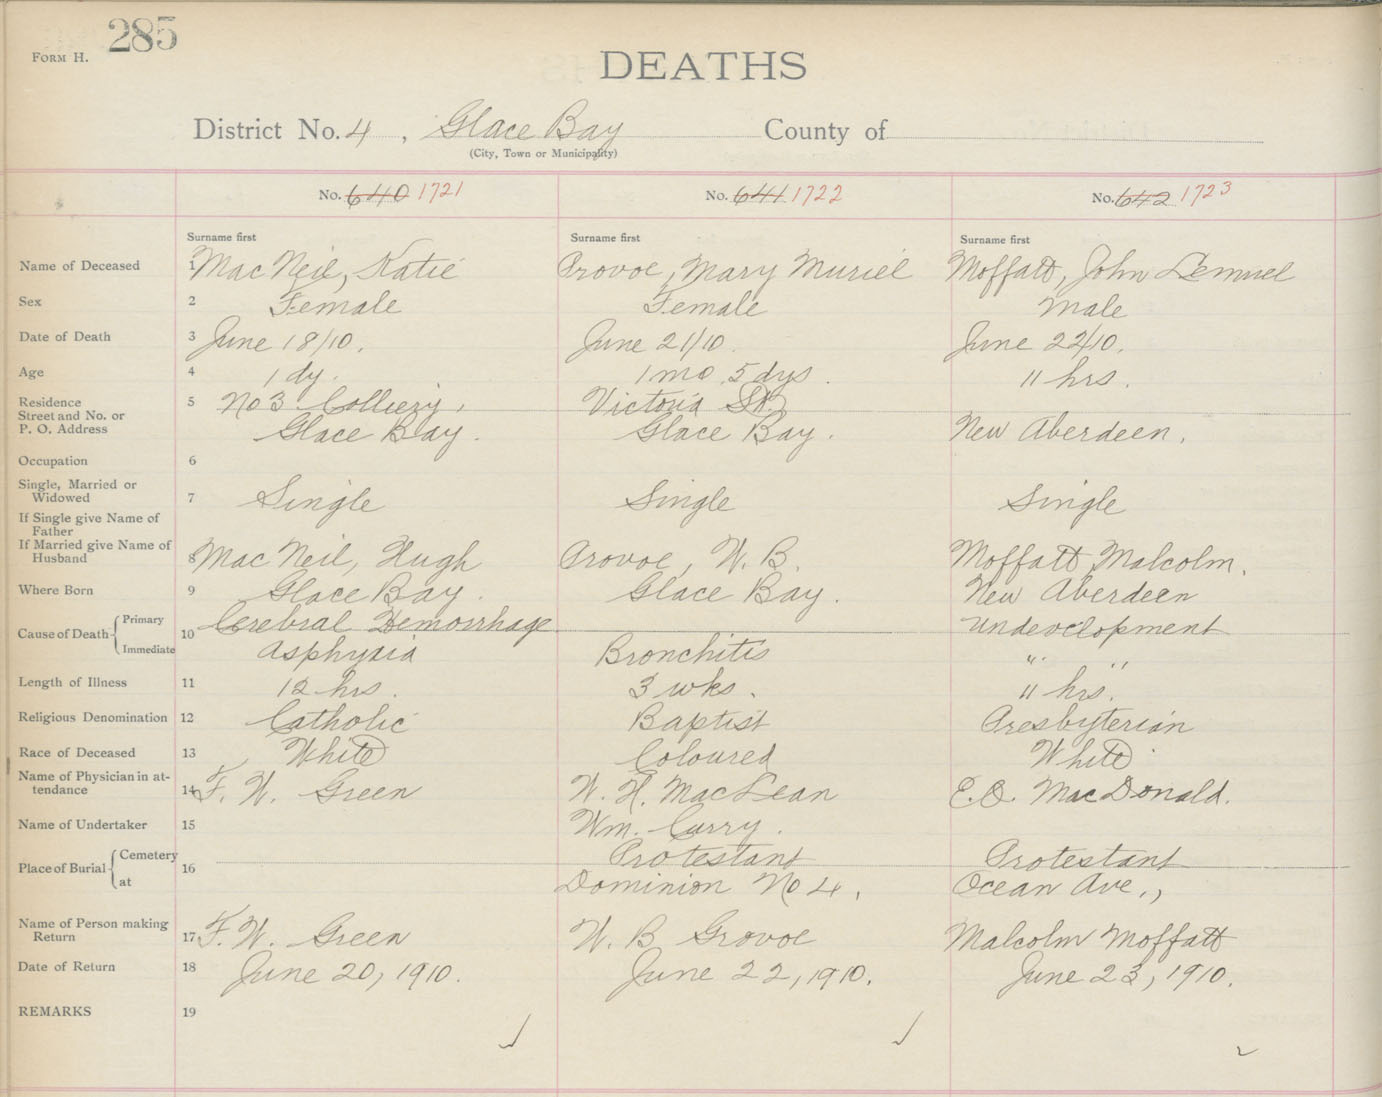 285
FORM H.
DEATHS
District No. 4, Glace Bay County of
(City, Town or Municipality)
No. 640 1721 No. 641 1722 No. 642 1723
Surname first Surname first Surname first
Name of Deceased 1 MacNeil, Katie Provoe, Mary Muriel Moffatt, John Lemuel
Sex 2 Female Female Male
Date of Death 3 June 18/10. June 21/10. June 22/10.
Age 4 1 dy. 1 mo. 5 dys. 11 hrs.
Residence 5 No 3 Colliery, Victoria St.
Street and No. or
P. O. Address Glace Bay. Glace Bay. New Aberdeen.
Occupation 6
Single, Married or
Widowed 7 Single Single Single
If Single give Name of
Father
If Married give Name of
Husband 8 MacNeil, Hugh Provoe, W. B. Moffatt, Malcolm.
Where Born 9 Glace Bay. Glace Bay. New Aberdeen
Cause of Death { Primary 10 Cerebral Hemorrhage Undevelopment
Immediate Asphyxia Bronchitis " "
Length of Illness 11 12 hrs. 3 wks. 11 hrs.
Religious Denomination 12 Catholic Baptist Presbyterian
Race of Deceased 13 White Coloured White
Name of Physician in at-
tendance 14 F. W. Green W. H. MacLean E.O. MacDonald.
Name of Undertaker 15 Wm. Curry.
Place of Burial { Cemetery 16 Protestant Protestant
at Dominion No 4, Ocean Ave.,
Name of Person making
Return 17 F. W. Green W. B Grovoe Malcolm Moffatt
Date of Return 18 June 20, 1910. June 22, 1910. June 23, 1910.
REMARKS 19